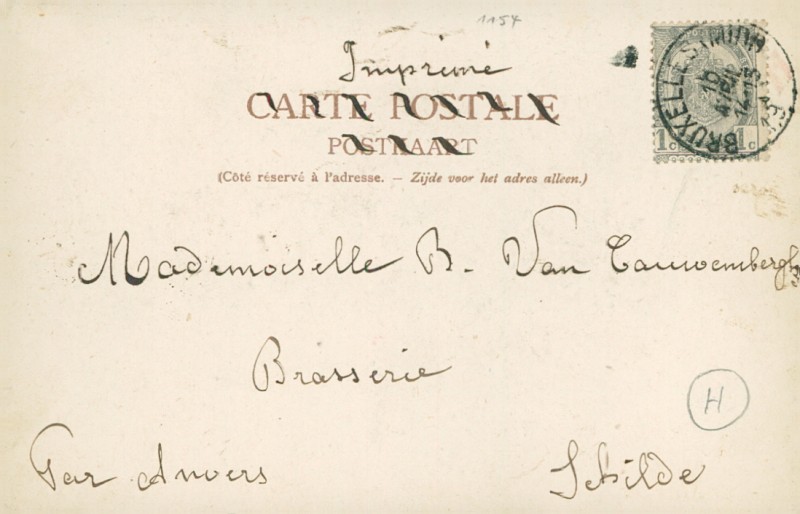 1154
Imprimé
CARTE POSTALE
POSTKAART
(Côté réservé à l'adresse. — Zijde voor het adres alleen.)
BRUXELLES (MIDI)
15
1c 1c
Mademoiselle B. Van Cauwembergh
Brasserie
H
Par Anvers Schilde